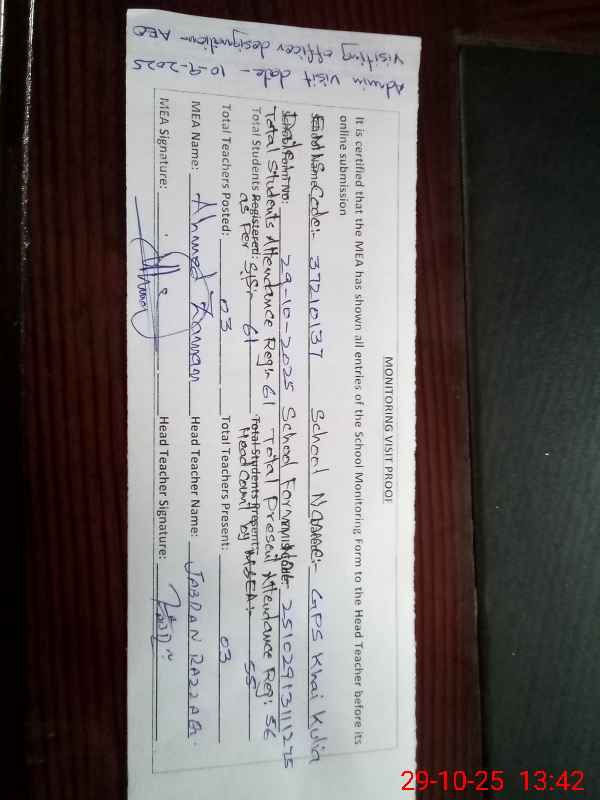 MONITORING VISIT PROOF
It is certified that the MEA has shown all entries of the School Monitoring Form to the Head Teacher before its
online submission
EMIS Code:- 37210137 School Name:- GPS Khai Kulia
Date:- 29-10-2025 School Form No:- 25102913111275
Total Students Attendance Reg:- 61 Total Present Attendance Reg: 56
Total Students Registered: as Per SIS:- 61 Total Students Present: Head Count by MEA:- 55
Total Teachers Posted: 03 Total Teachers Present: 03
MEA Name: Ahmed Zaman Head Teacher Name: JABDAN RAZZAQ.
MEA Signature: Head Teacher Signature:
Admin visit date- 10-9-2025
visiting officer designation- AEO
29-10-25 13:42